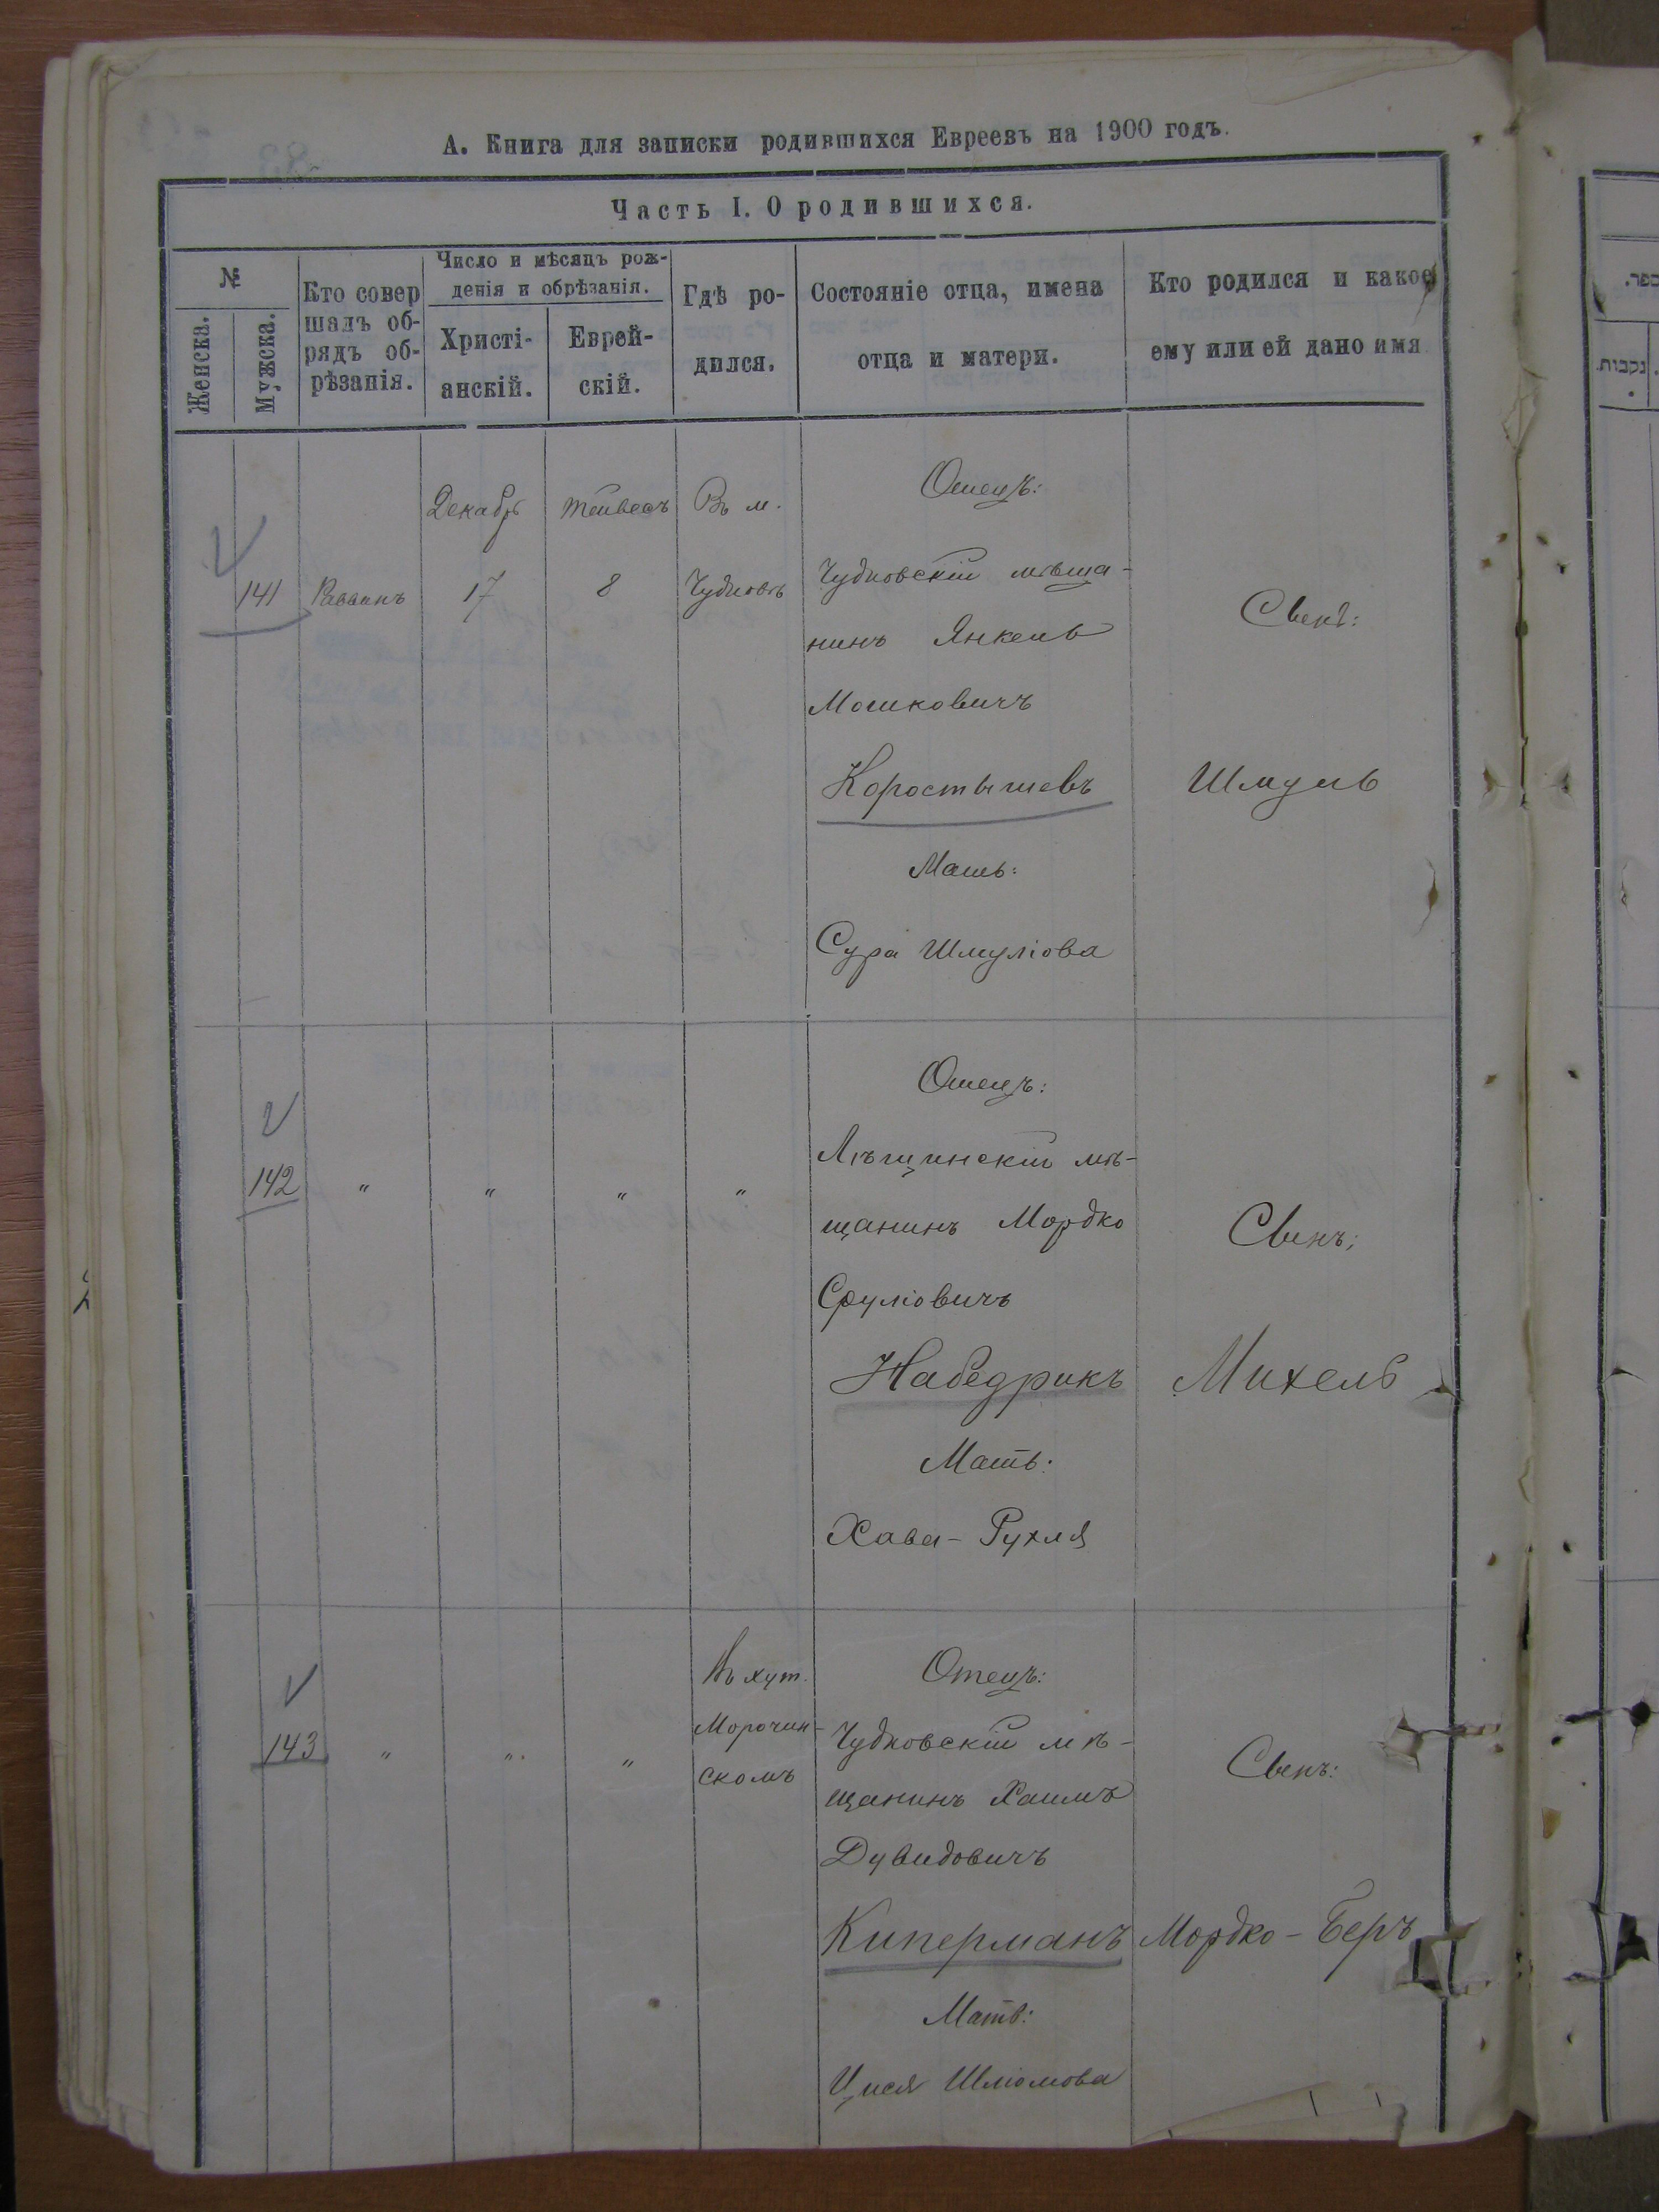 А. Книга для записки родившихся Евреевъ на 1900 годъ.
Часть I. О родившихся.
№
Женска.
Мужска.
Кто совер
шалъ об-
рядъ об-
рѣзанія.
Число и мѣсяцъ рож-
денія и обрѣзанія.
Христі-
анскій.
Еврей-
скій.
Гдѣ ро-
дился.
Состояніе отца, имена
отца и матери.
Кто родился и какое
ему или ей дано имя
Декабр
Тейвесъ
Въ м.
Отецъ:
141
Раввинъ
17
8
Чудновъ
Чудновскій мѣща-
нинъ Янкель
Мошковичъ
Коростышевъ
Мать:
Сура Шмуліова
Сынъ:
Шмуль
142
"
"
"
"
Отецъ:
Лѣщинскій мѣ-
щанинъ Мордко
Сруліовичъ
Набедрикъ
Мать:
Хава-Рухля
Сынъ:
Михель
143
"
"
"
Въ хут.
Морочин-
скомъ
Отецъ:
Чудновскій мѣ-
щанинъ Хаимъ
Дувидовичъ
Киперманъ
Мать:
Цися Шліомова
Сынъ:
Мордко-Беръ
ספר.
נקבות.